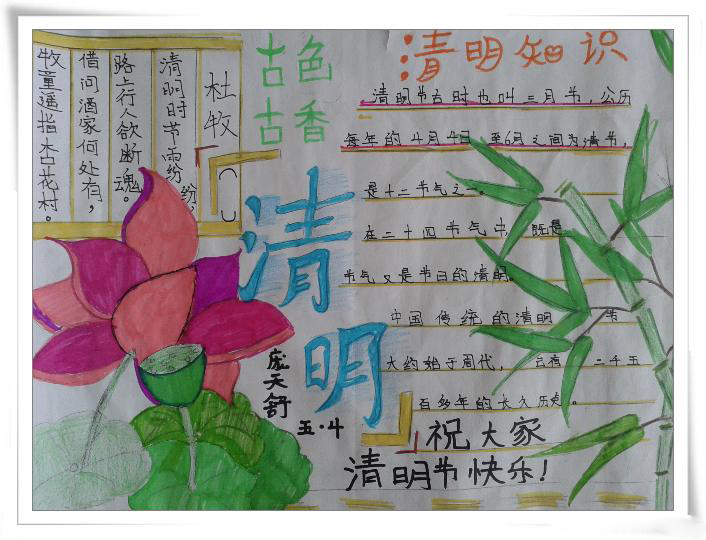 杜牧
清明时节雨纷纷，
路上行人欲断魂。
借问酒家何处有，
牧童遥指杏花村。
古色
古香
清明
庞天舒
五·4
清明知识
清明节古时也叫三月节，公历
每年的4月4日至6日之间为清节，
是十二节气之一。
在二十四节气中，既是
节气又是节日的清明。
中国传统的清明节
大约始于周代，二千五
百多年的长久历史。
祝大家
清明节快乐！